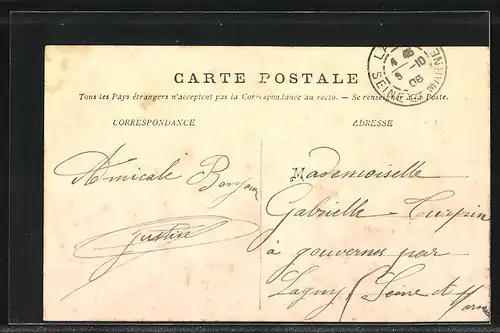 CARTE POSTALE
Tous les Pays étrangers n'acceptent pas la Correspondance au recto. — Se renseigner à la Poste.
CORRESPONDANCE
ADRESSE
Amicale Bonjour
Justine
Mademoiselle
Gabrielle Turpin
à gouvernes par
Lagny (Seine et Marne
LA
4
5 -10
06
SEINE & MARNE